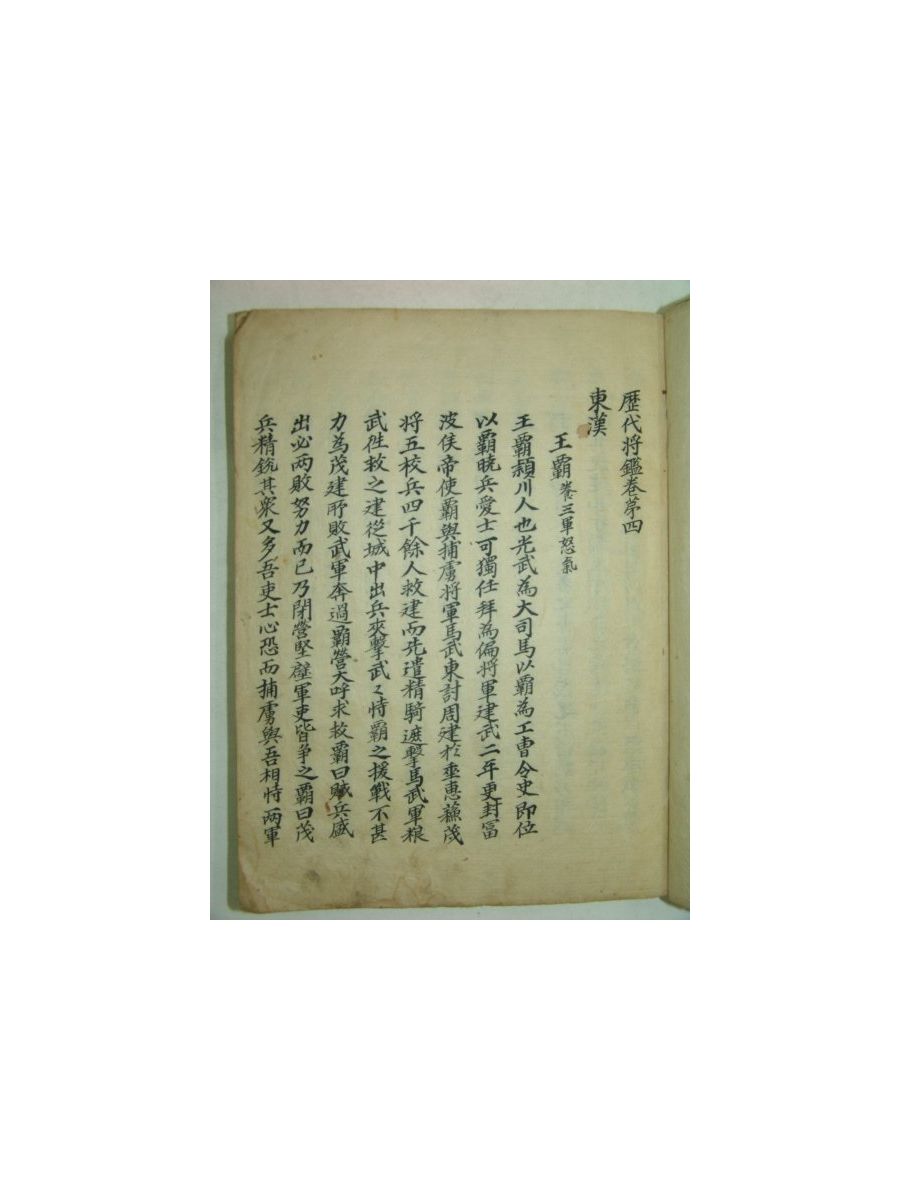 歷代将鑑卷苐四
東漢
王霸 养三軍怒氣
王霸潁川人也光武為大司馬以霸為工曹令史即位
以霸暁兵愛士可獨任拜為偏将軍建武二年更封冨
波侯帝使霸與捕虜将軍馬武東討周建扵垂惠蘇茂
将五校兵四千餘人救建而先遣精騎遮擊馬武軍粮
武徃救之建從城中出兵夾擊武〻恃霸之援戰不甚
力為茂建所敗武軍奔過霸營大呼求救霸曰賊兵盛
出必两敗努力而已乃閉營堅壁軍吏皆爭之霸曰茂
兵精銳其衆又多吾吏士心恐而捕虜與吾相恃两軍